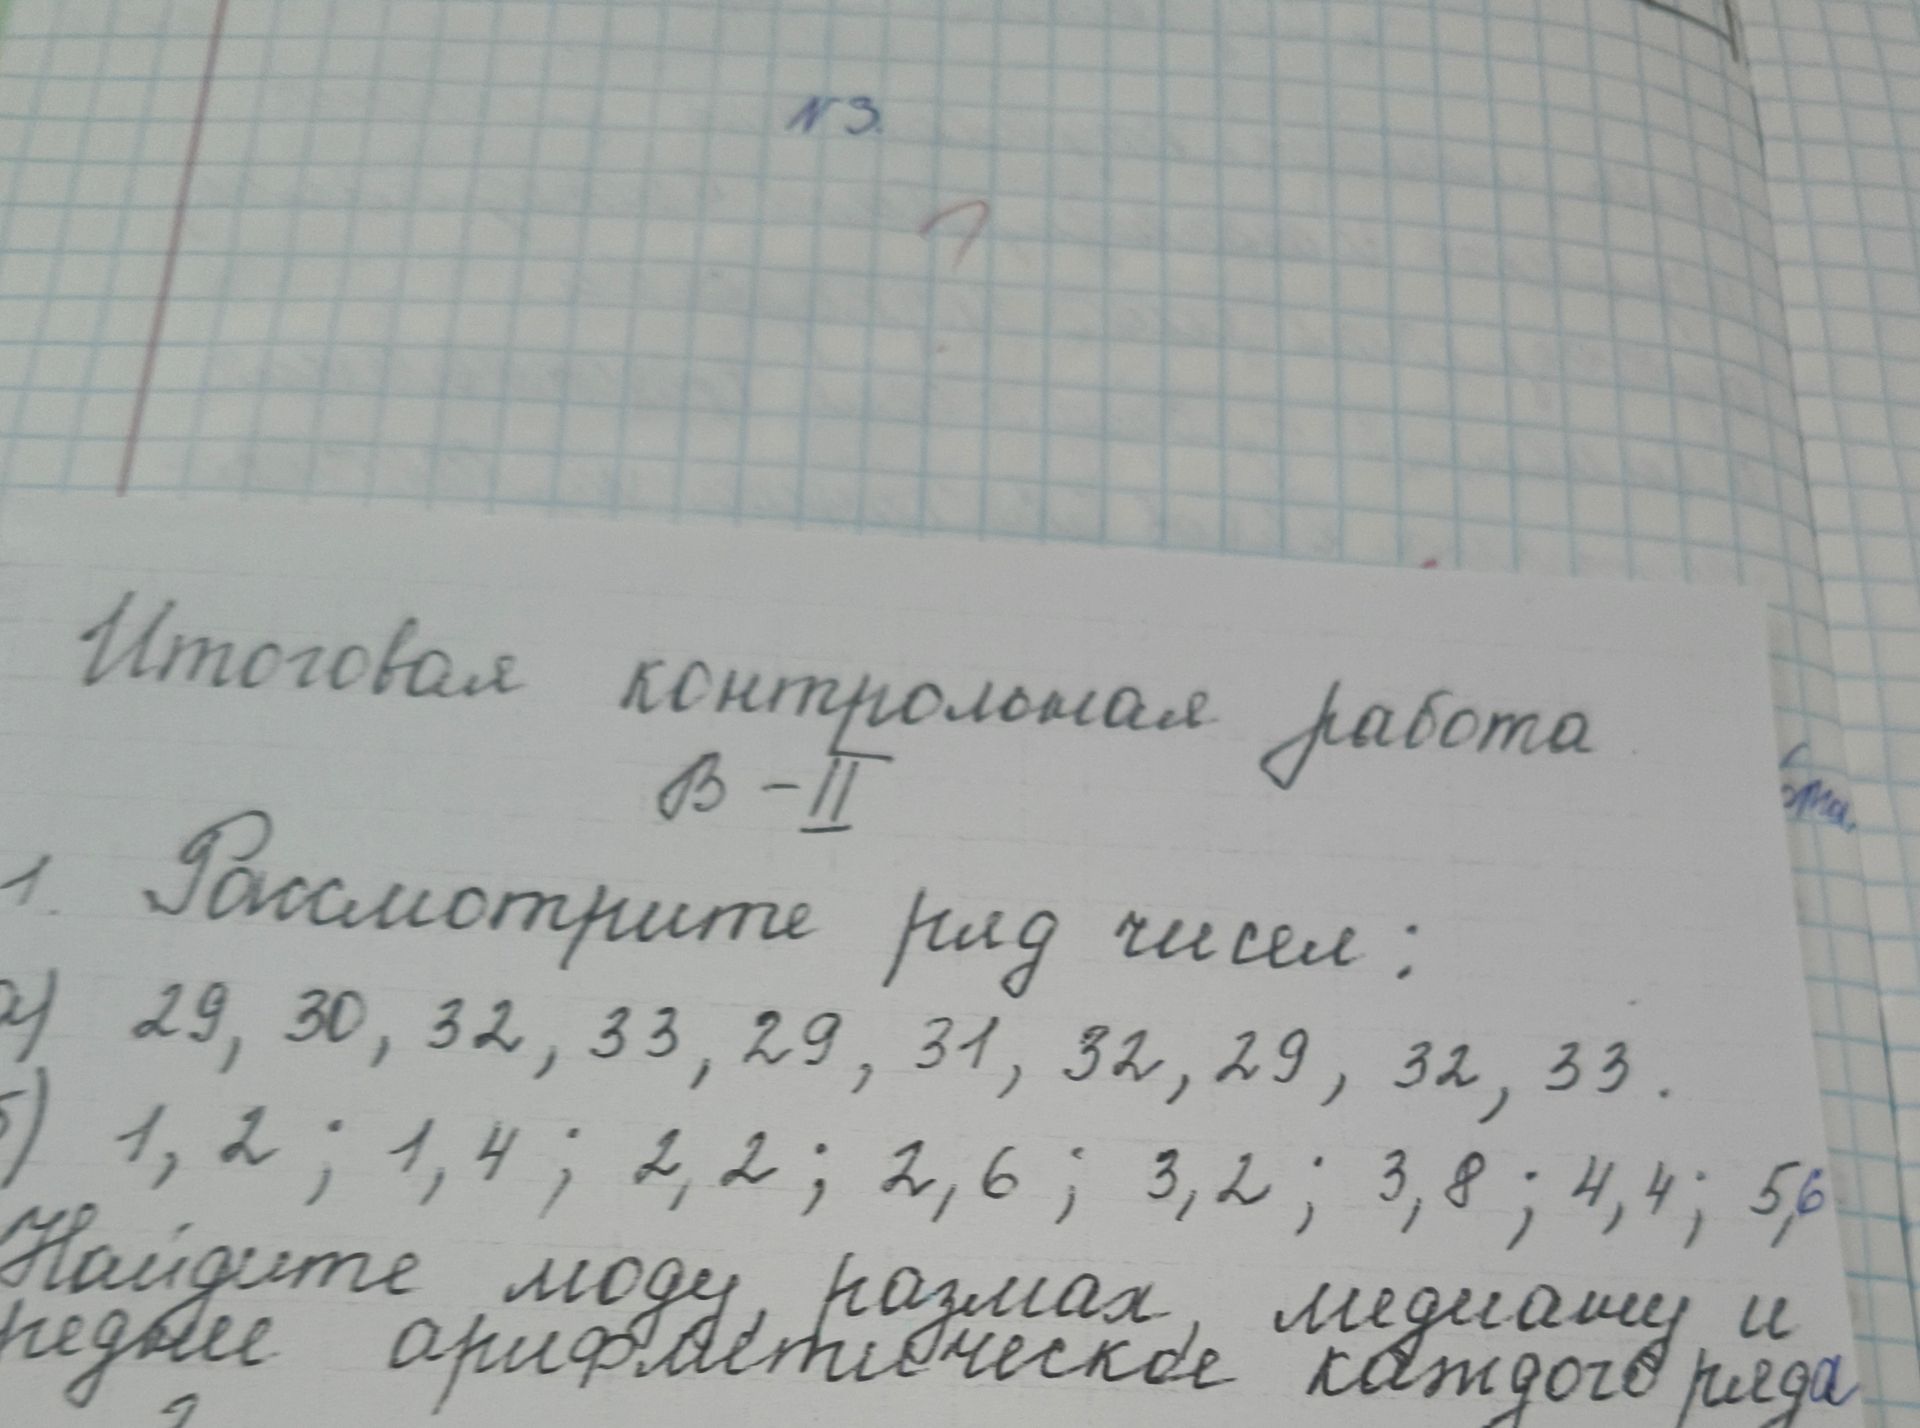 N 3.
Итоговая контрольная работа
В - II
1. Рассмотрите ряд чисел:
а) 29, 30, 32, 33, 29, 31, 32, 29, 32, 33.
б) 1,2; 1,4; 2,2; 2,6; 3,2; 3,8; 4,4; 5,6
Найдите моду, размах, медиану и
редние арифметическое каждого ряда